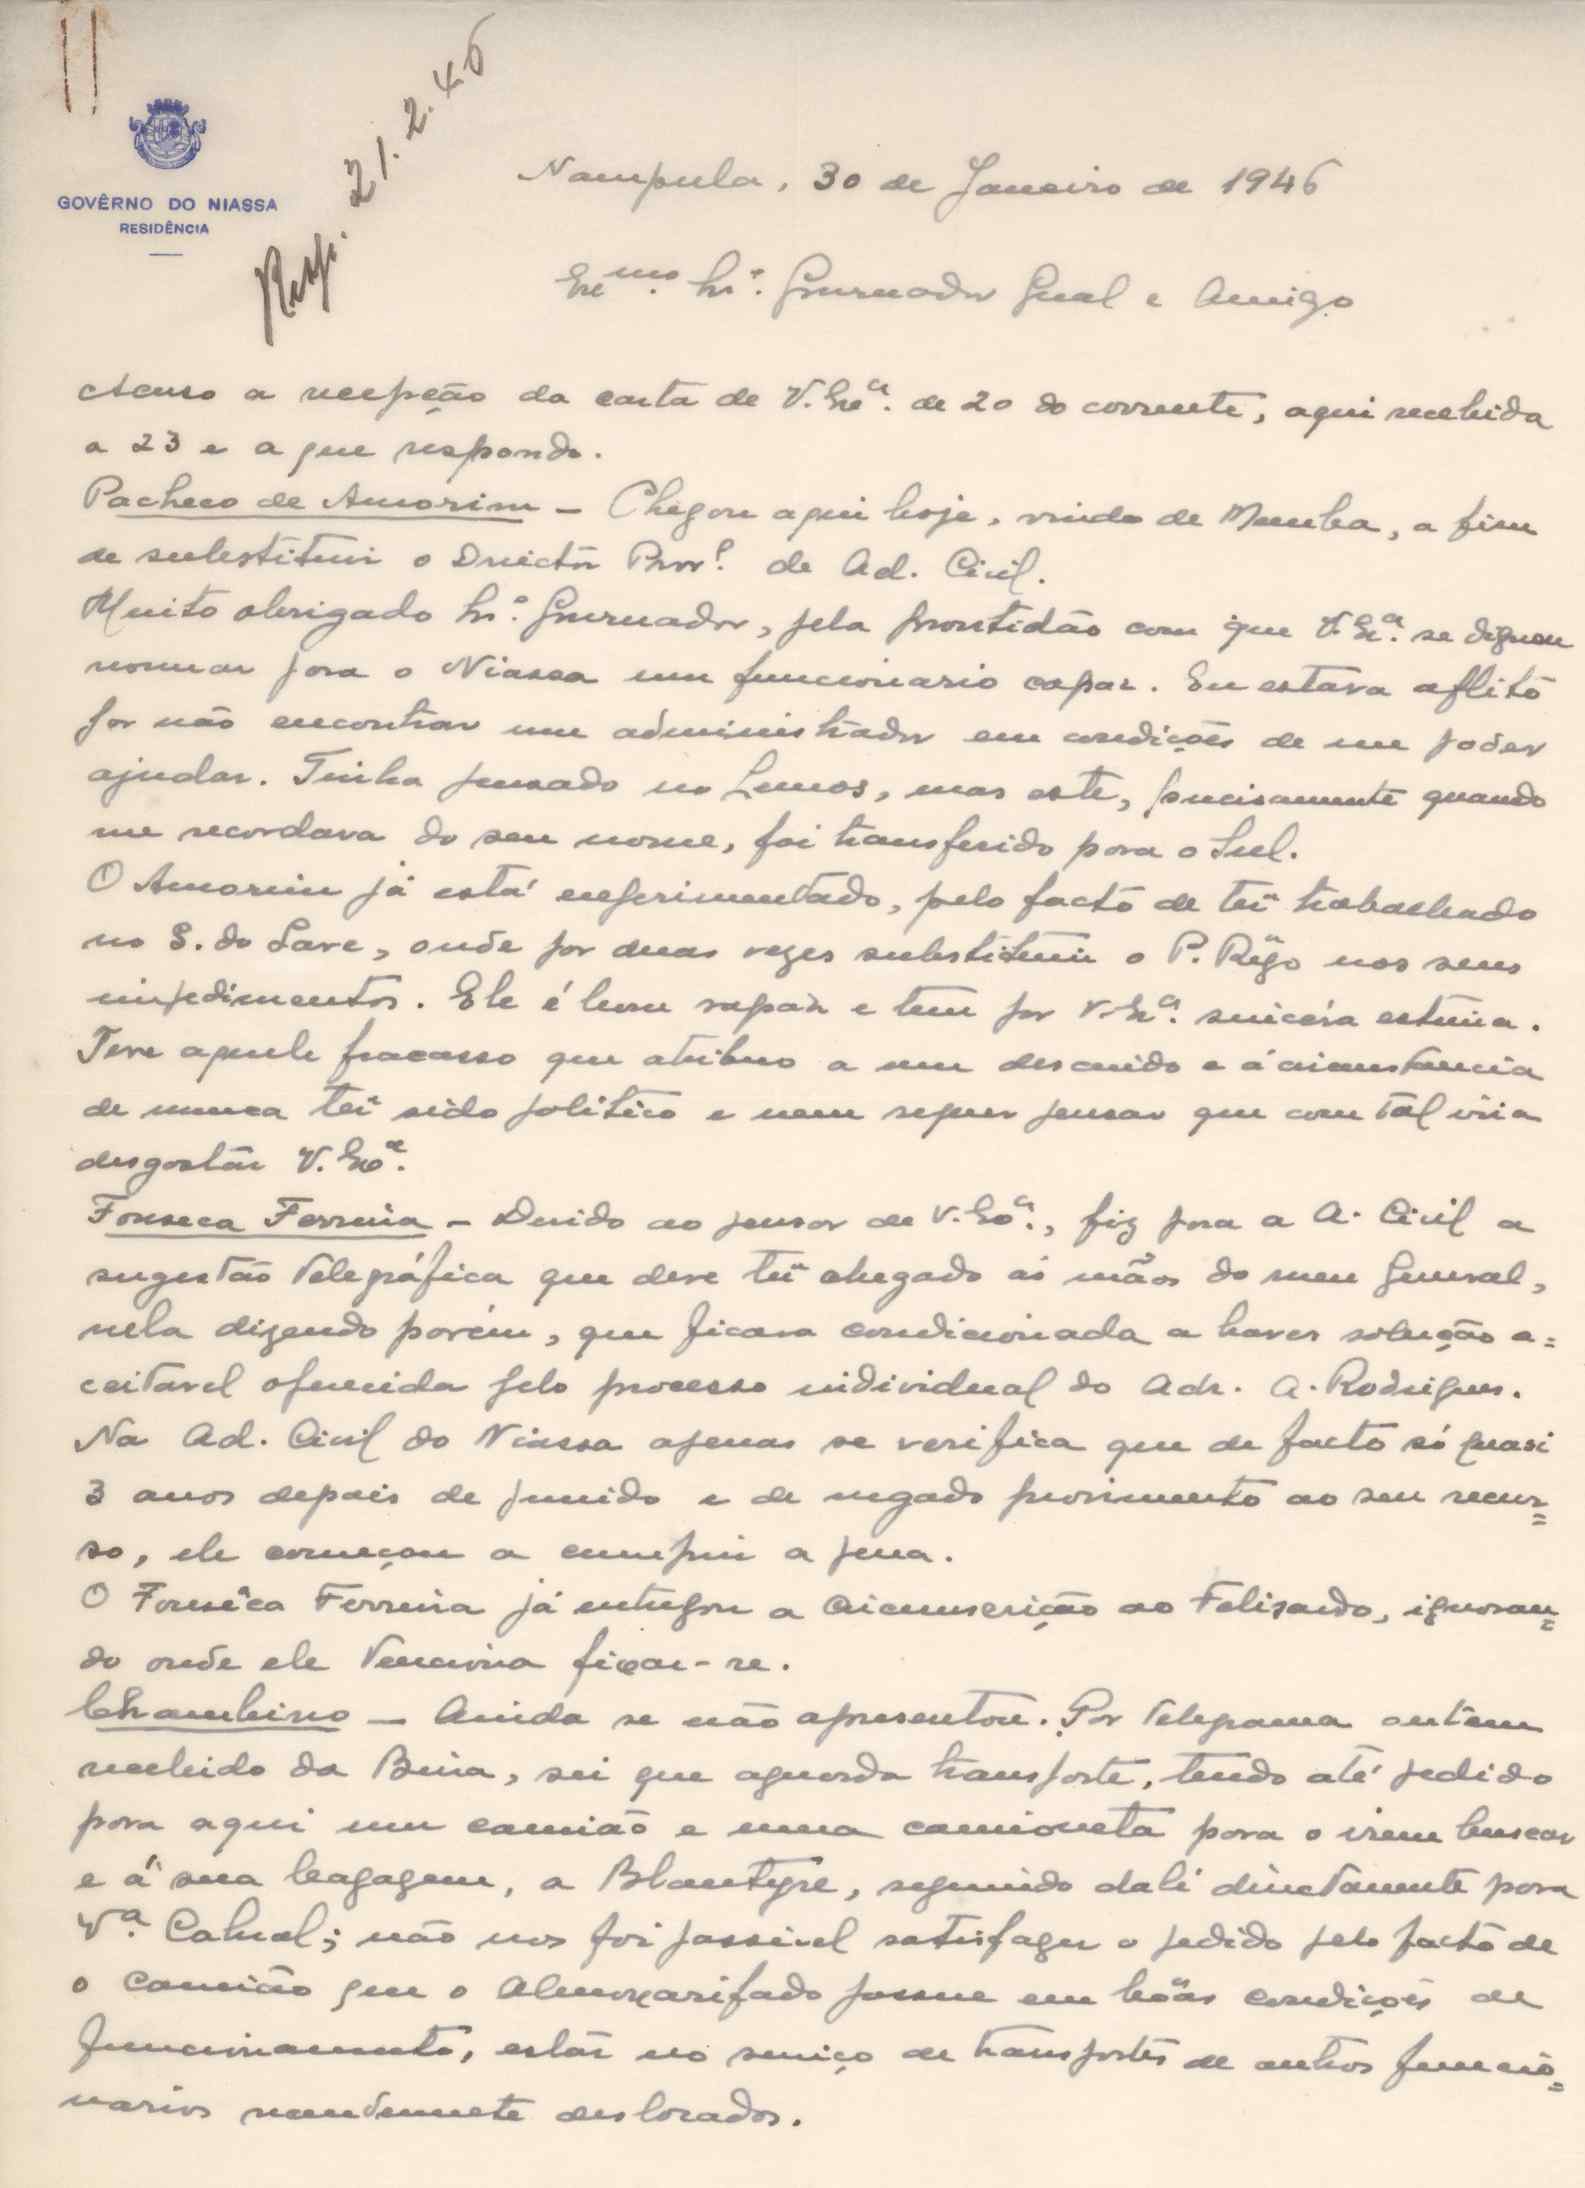 GOVÊRNO DO NIASSA
RESIDÊNCIA
Resp. 21.2.46
Nampula, 30 de Janeiro de 1946
Exmo. Sr. Governador Geral e Amigo
Acuso a recepção da carta de V. Exa. de 20 do corrente, aqui recebida
a 23 e a que respondo.
Pacheco de Amorim – Chegou aqui hoje, vindo de Memba, a fim
de substituir o Director Provl. de Ad. Civil.
Muito obrigado Sr. Governador, pela prontidão com que V. Exa. se dignou
nomear para o Niassa um funcionario capaz. Eu estava aflito
por não encontrar um administrador em condições de me poder
ajudar. Tinha pensado no Lemos, mas este, precisamente quando
me recordava do seu nome, foi transferido para o Sul.
O Amorim já está experimentado, pelo facto de ter trabalhado
no S. do Save, onde por duas vezes substituiu o P. Rêgo nos seus
impedimentos. Ele é bom rapaz e tem por V. Exa. sincera estima.
Teve aquele fracasso que atribuo a um descuido e á circunstancia
de nunca ter sido politico e nem sequer pensar que com tal viria
desgostar V. Exa.
Fonseca Ferreira – Devido ao pensar de V. Exa., fiz para a A. Civil a
sugestão telegráfica que deve ter chegado ás mãos do meu General,
nela dizendo porém, que ficava condicionada a haver solução a=
ceitavel oferecida pelo processo individual do Adr. A. Rodrigues.
Na Ad. Civil do Niassa apenas se verifica que de facto só quasi
3 anos depois de punido e de negado provimento ao seu recur=
so, ele começou a cumprir a pena.
O Fonsêca Ferreira já entregou a Circunscrição ao Felizardo, ignoran=
do onde ele tenciona fixar-se.
Chambino – Ainda se não apresentou. Por telegrama ontem
recebido da Beira, sei que aguarda transporte, tendo até pedido
para aqui um camião e uma camioneta para o irem buscar
e á sua bagagem, a Blantyre, seguindo dali directamente para
Va. Cabral; não nos foi possivel satisfazer o pedido pelo facto de
o camião que o Almoxarifado possue em bôas condições de
funcionamento, estar no serviço de transportes de outros funcio=
narios deslocados.